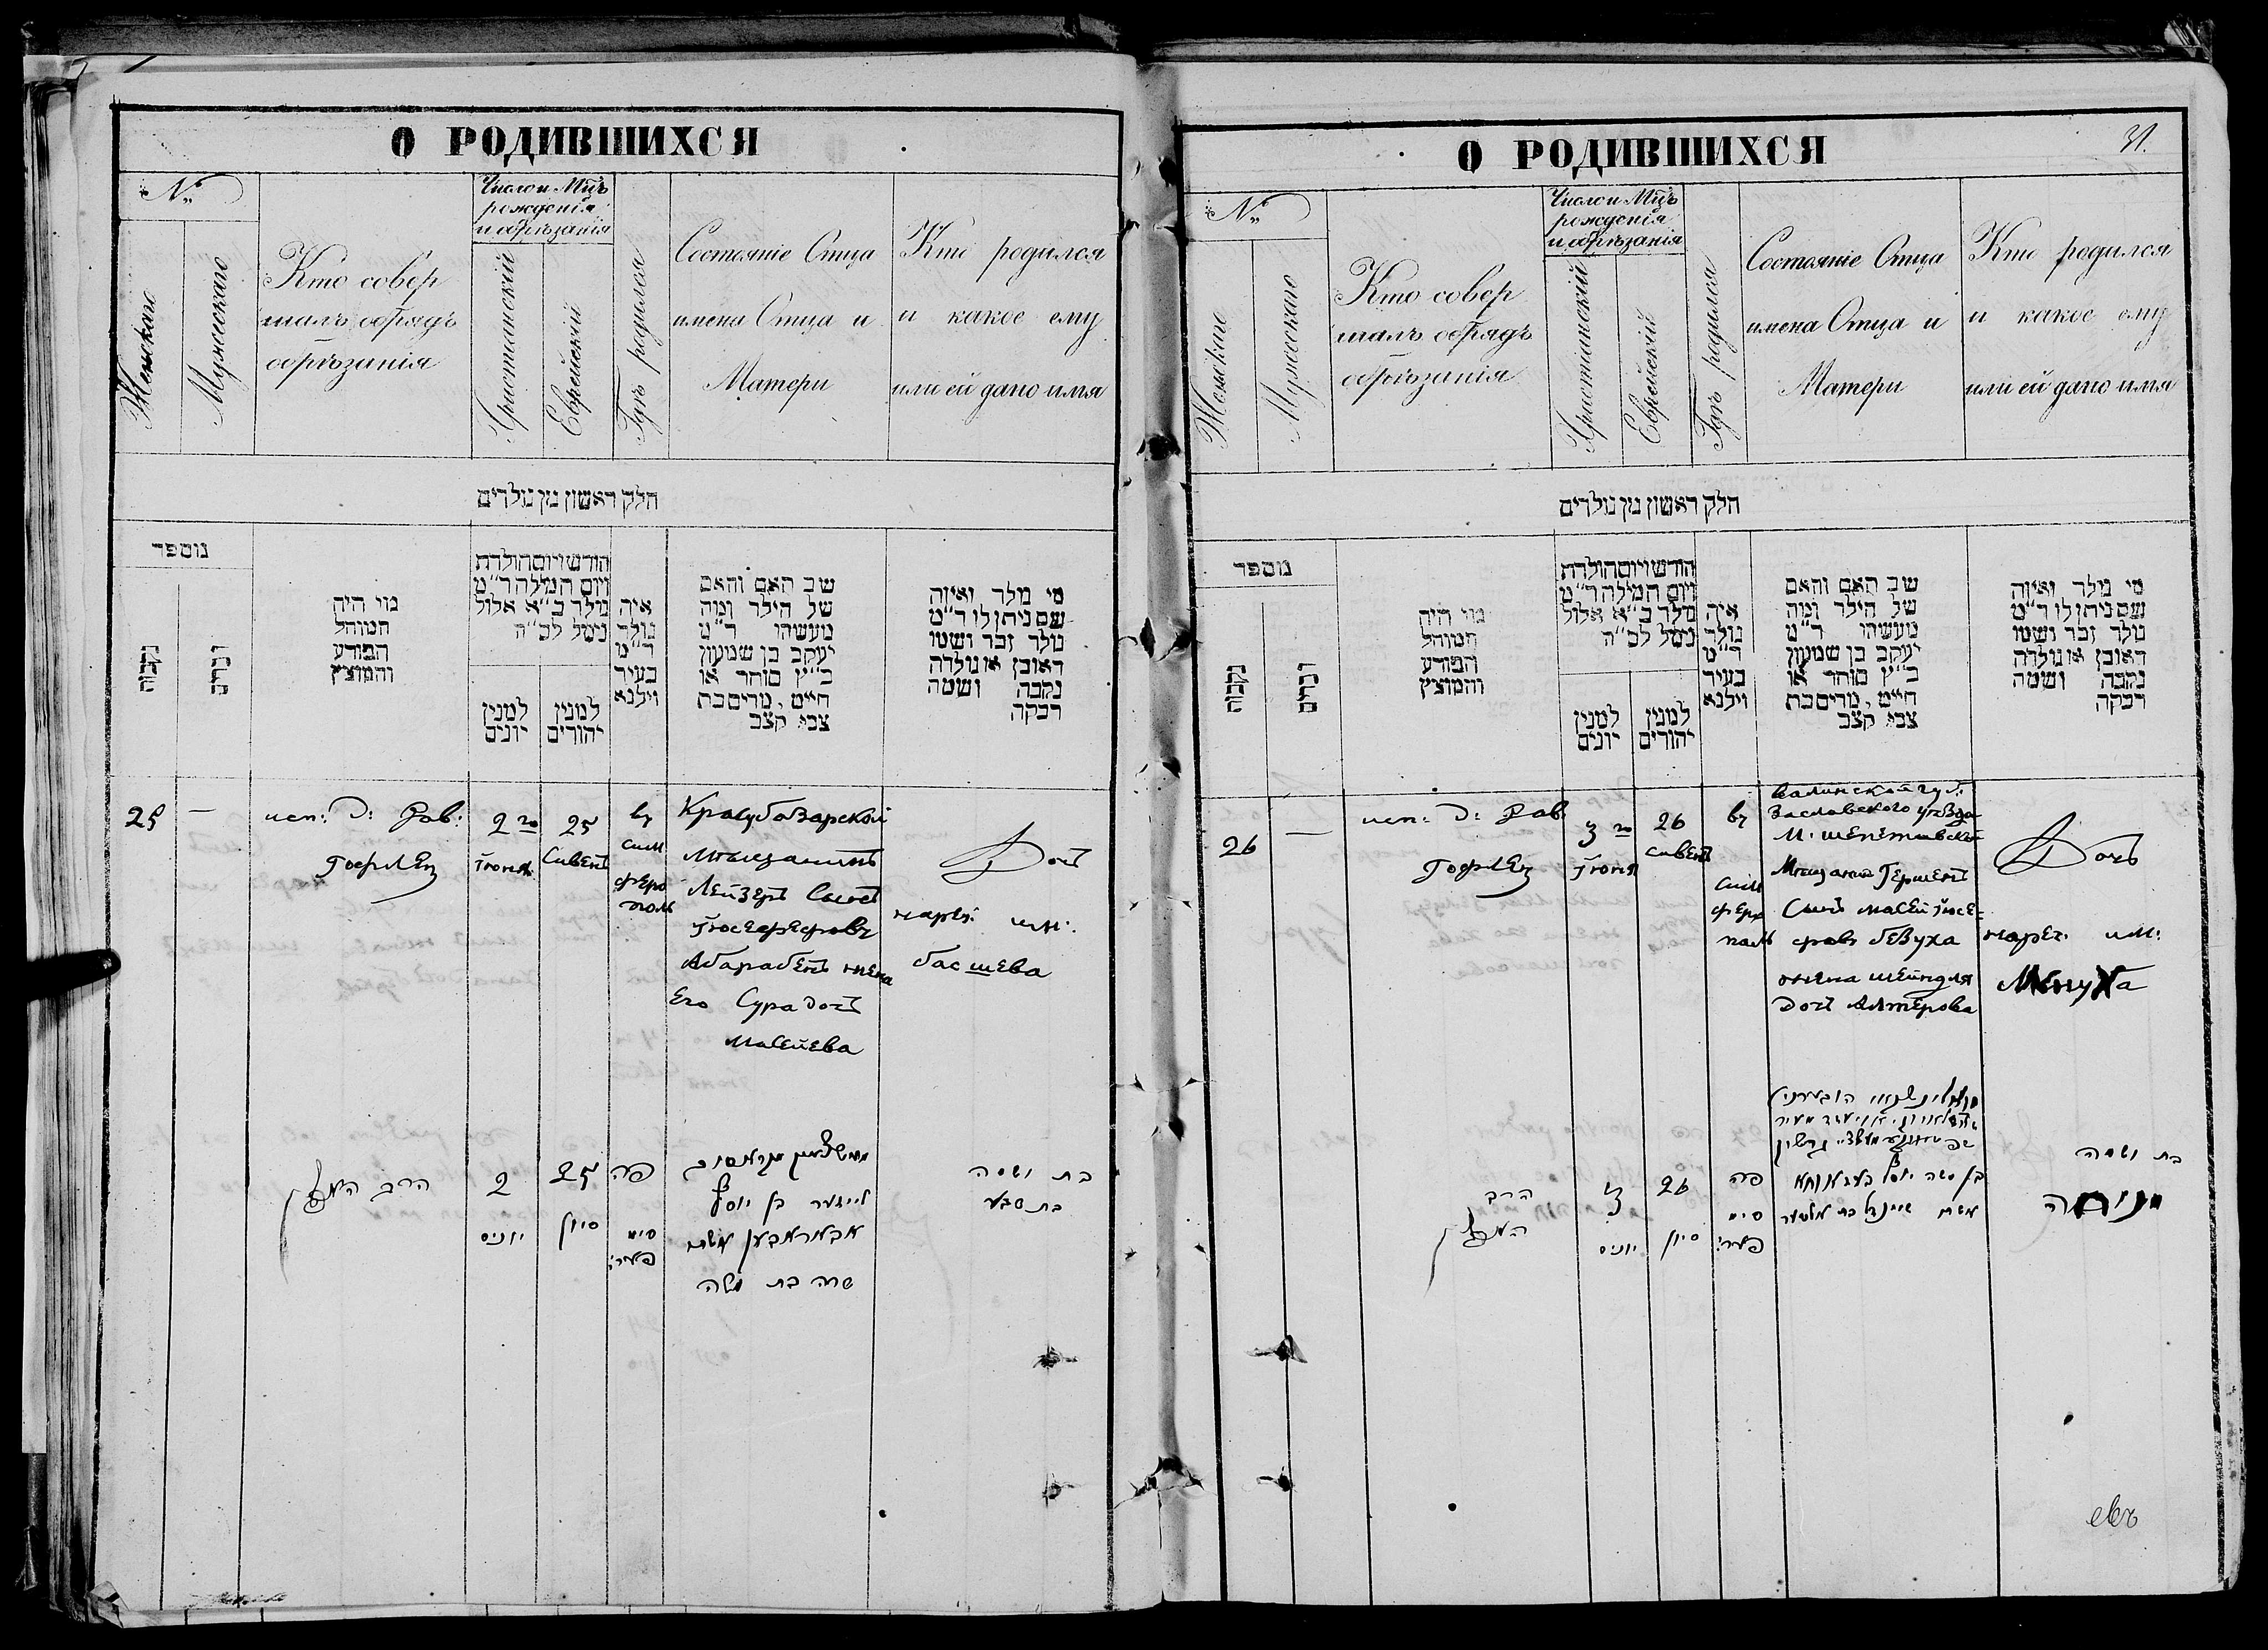 О РОДИВШИХСЯ
№
Женскаго
Мужескаго
Кто совер
шалъ обрядъ
обрѣзанія
Число и Мцъ
рожденія
и обрѣзанія
Христіанскій
Еврейскій
Гдѣ родился
Состояніе Отца
имена Отца и
Матери
Кто родился
и какое ему
или ей дано имя
חלק ראשון מן נולדים
מספר
נקבות
זכרים
מי היה
המוהל
הפורע
והמוצץ
חודש ויום הולדת
ויום המילה ר"מ
נולד כ"א אלול
נימל לס"ה
למנין
יונים
למנין
יהודים
איה
נולד
ר"מ
בעיר
וילנא
שב האם והאם
של הילד ומה
מעשהו ר"מ
יעקב בן שמעון
כ"ץ סוחר או
חייט, מרים בת
צבי קצב
מי נולד ואיזה
שם ניתן לו ר"מ
נולד זכר ושמו
ראובן או נולדה
נקבה ושמה
רבקה
25
—
исп: д: Рав:
Гофлец
2го
Іюня
25
Сивенъ
въ
Сим
феро
поль
Карасубазарской
Мѣщанинъ
Лейзеръ Сынъ
Іосефовъ
Абарабенъ жена
Его Сура дочь
Мосеева
Дочь
нареч: им:
басшева
הרב
2
יוניס
25
סיון
פה
סימ
פער:
לייזער בן יוסף
שרה בת משה
בת ושמה
בת שבע
О РОДИВШИХСЯ
31.
№
Женскаго
Мужескаго
Кто совер
шалъ обрядъ
обрѣзанія
Число и Мцъ
рожденія
и обрѣзанія
Христіанскій
Еврейскій
Гдѣ родился
Состояніе Отца
имена Отца и
Матери
Кто родился
и какое ему
или ей дано имя
חלק ראשון מן נולדים
מספר
נקבות
זכרים
מי היה
המוהל
הפורע
והמוצץ
חודש ויום הולדת
ויום המילה ר"מ
נולד כ"א אלול
נימל לס"ה
למנין
יונים
למנין
יהודים
איה
נולד
ר"מ
בעיר
וילנא
שב האם והאם
של הילד ומה
מעשהו ר"מ
יעקב בן שמעון
כ"ץ סוחר או
חייט, מרים בת
צבי קצב
מי נולד ואיזה
שם ניתן לו ר"מ
נולד זכר ושמו
ראובן או נולדה
נקבה ושמה
רבקה
26
—
исп: д: Рав:
Гофлец
3го
Іюня
26
Сивенъ
въ
Сим
феро
поль
Валинской губ:
Заславского уѣзда
М: шепетивской
Мѣщанинъ Гершенъ
Сынъ Мосей Іосе-
фовъ беВуха
жена шейндля
дочь Алтерова
Дочь
нареч: им:
Менуха
הרב
3
יוניס
26
סיון
פה
סימ
פער:
בן משה יוסף
שיינדל בת אלטער
בת ושמה
מנוחה